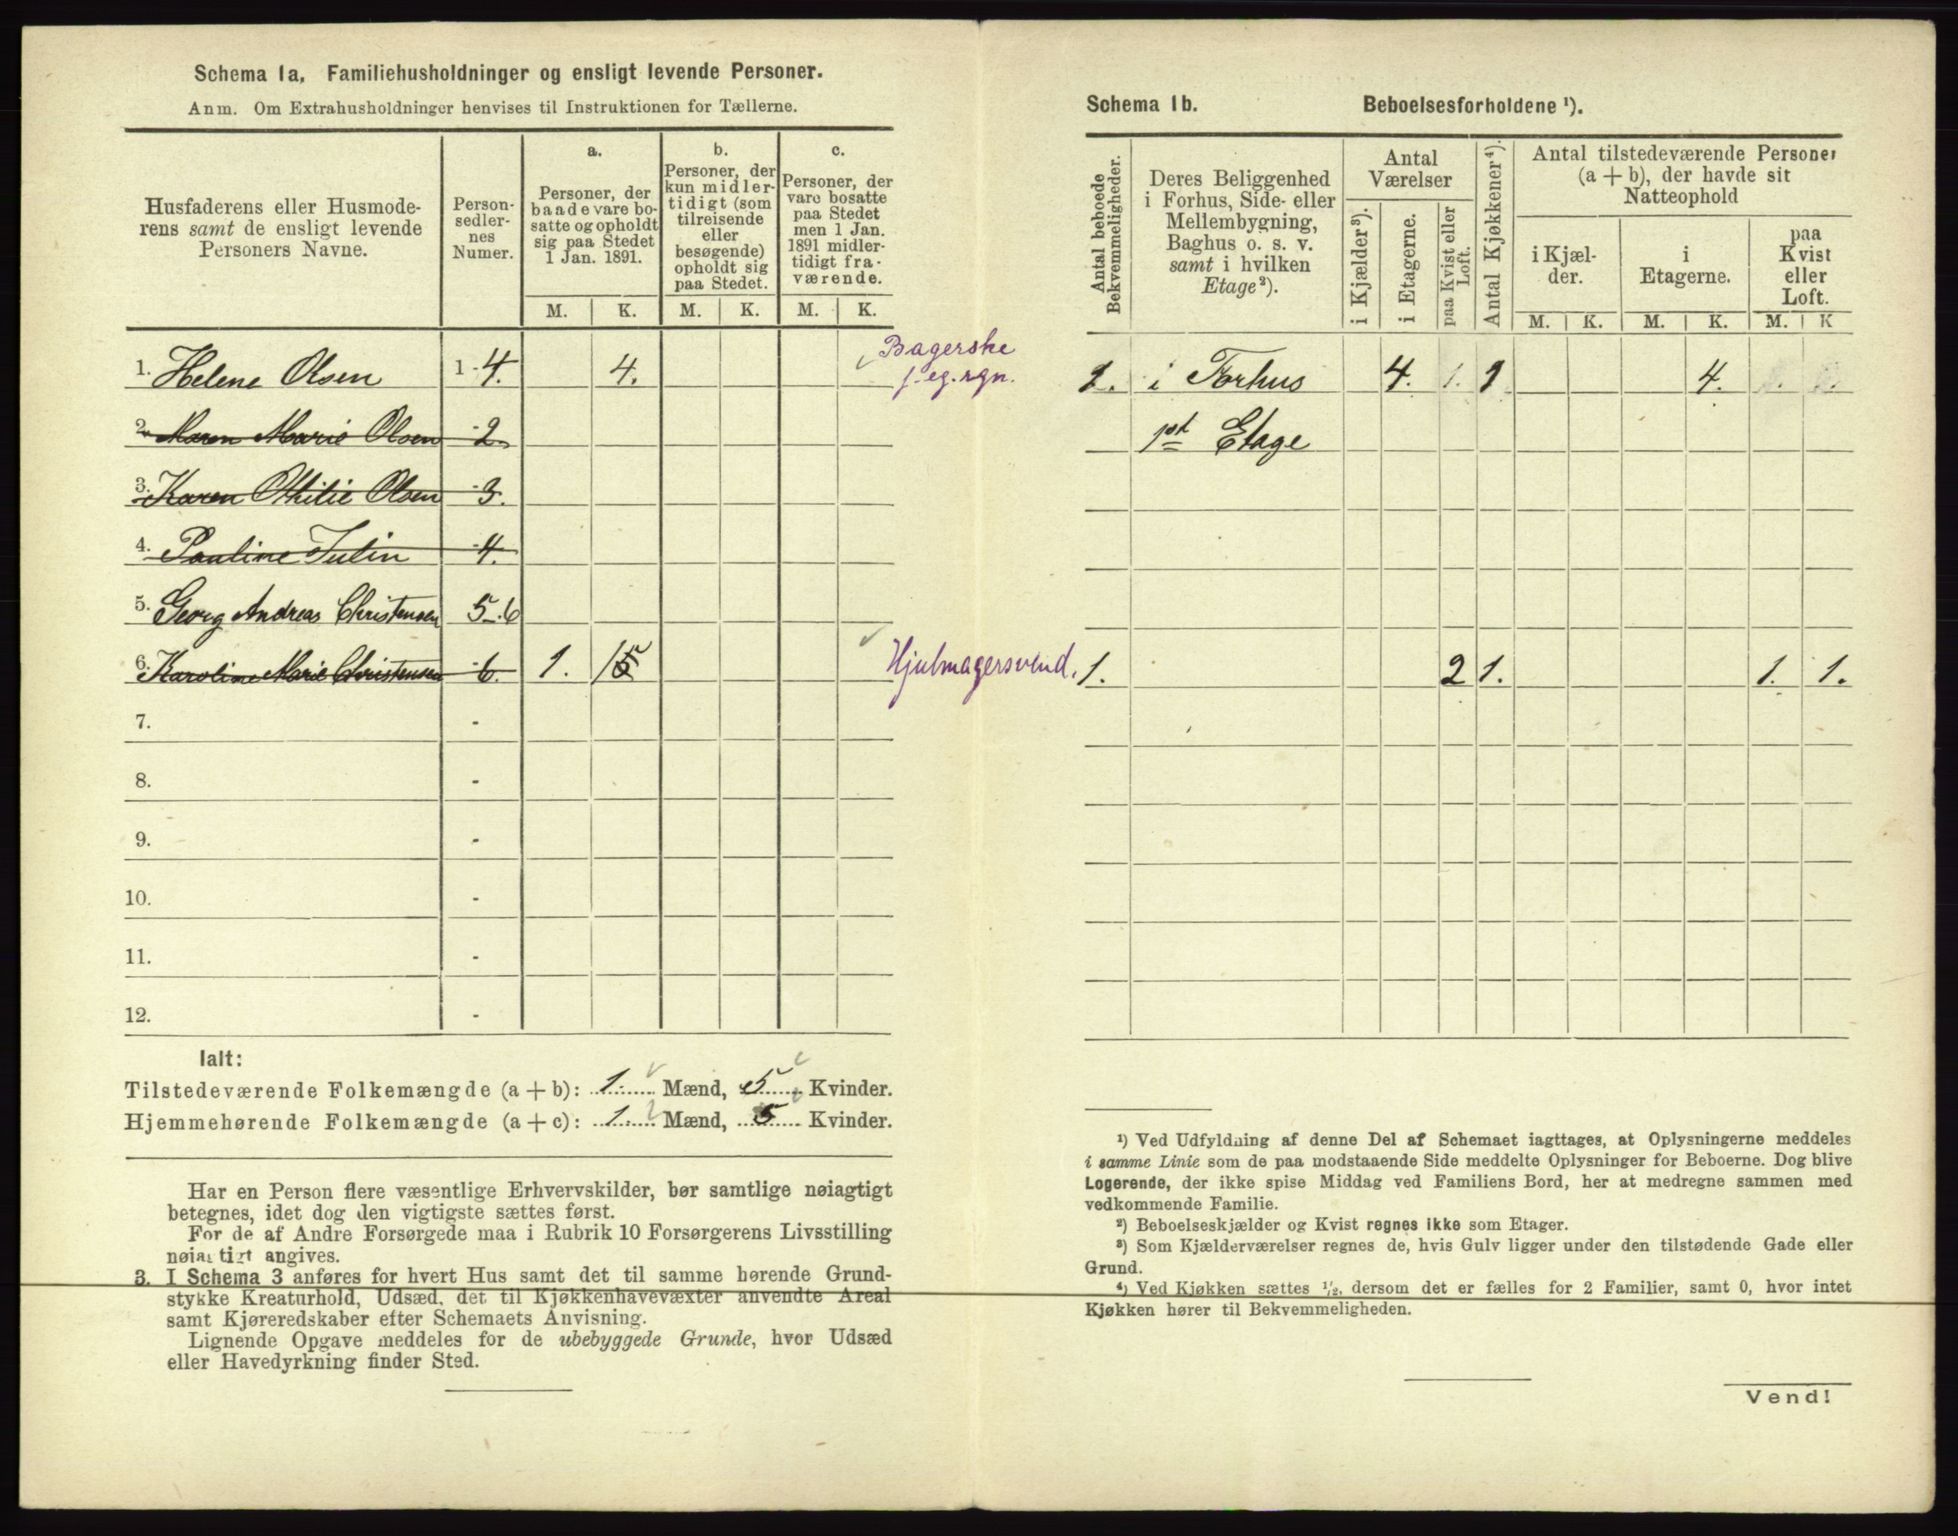 Schema 1a. Familiehusholdninger og ensligt levende Personer.
Anm. Om Extrahusholdninger henvises til Instruktionen for Tællerne.
Husfaderens eller Husmode-
rens samt de ensligt levende
Personers Navne.
Person-
sedler-
nes
Numer.
a.
Personer, der
baade vare bo-
satte og opholdt
sig paa Stedet
1 Jan. 1891.
b.
Personer, der
kun midler-
tidigt (som
tilreisende
eller
besøgende)
opholdt sig
paa Stedet.
c.
Personer, der
vare bosatte
paa Stedet
men 1 Jan.
1891 midler-
tidigt fra-
værende.
M. K. M. K. M. K.
1. Helene Olsen 1-4. 4. Bagerske
f. eg. rgn.
2. Maren Marie Olsen -2.
3. Karen Othilie Olsen -3.
4. Pauline Julin -4.
5. Georg Andreas Christensen 5-6
6. Karoline Marie Christensen -6. 1. 1 Hjulmagersvend.
7. -
8. -
9. -
10. -
11. -
12. -
Ialt:
Tilstedeværende Folkemængde (a + b): 1. Mænd, 5 Kvinder.
Hjemmehørende Folkemængde (a + c): 1. Mænd, 5 Kvinder.
Har en Person flere væsentlige Erhvervskilder, bør samtlige nøiagtigt
betegnes, idet dog den vigtigste sættes først.
For de af Andre Forsørgede maa i Rubrik 10 Forsørgerens Livsstilling
nøiagtigt angives.
3. I Schema 3 anføres for hvert Hus samt det til samme hørende Grund-
stykke Kreaturhold, Udsæd, det til Kjøkkenhavevæxter anvendte Areal
samt Kjøreredskaber efter Schemaets Anvisning.
Lignende Opgave meddeles for de ubebyggede Grunde, hvor Udsæd
eller Havedyrkning finder Sted.
Schema 1b. Beboelsesforholdene ¹).
Antal beboede
Bekvemmeligheder.
Deres Beliggenhed
i Forhus, Side- eller
Mellembygning,
Baghus o. s. v.
samt i hvilken
Etage²).
Antal
Værelser
i Kjælder³).
i Etagerne.
paa Kvist eller
Loft.
Antal Kjøkkener⁴).
Antal tilstedeværende Personer
(a + b), der havde sit
Natteophold
i Kjæl-
der.
i
Etagerne.
paa
Kvist
eller
Loft.
M. K. M. K. M. K
1. i Forhus 4. 1. 1 4.
1st Etage
1. 2 1. 1. 1.
¹) Ved Udfyldning af denne Del af Schemaet iagttages, at Oplysningerne meddeles
i samme Linie som de paa modstaaende Side meddelte Oplysninger for Beboerne. Dog blive
Logerende, der ikke spise Middag ved Familiens Bord, her at medregne sammen med
vedkommende Familie.
²) Beboelseskjælder og Kvist regnes ikke som Etager.
³) Som Kjælderværelser regnes de, hvis Gulv ligger under den tilstødende Gade eller
Grund.
⁴) Ved Kjøkken sættes ½, dersom det er fælles for 2 Familier, samt 0, hvor intet
Kjøkken hører til Bekvemmeligheden.
Vend!